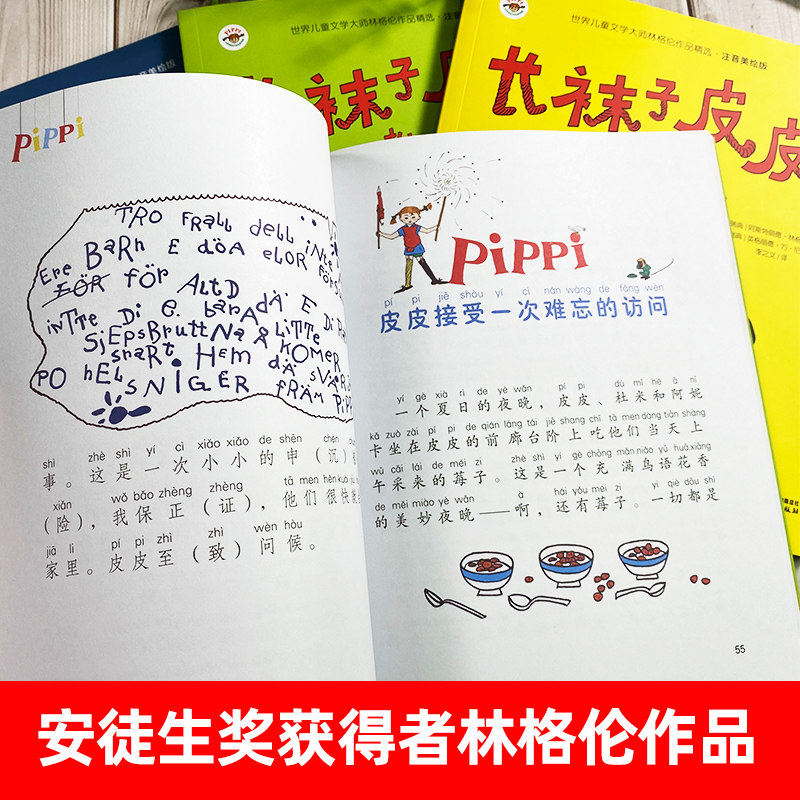 世界儿童文学大师林格伦作品精选·注音美绘版
世界儿童文学大师林格伦作品精选·注音美绘版
长袜子皮
长袜子皮皮
李之义/译
PiPPi
TRO FRALL dell inte A
ERE BARN E döA ELOR FÖRS
FÖR för ALTD
inTTe Di e. barA dÄ E Di
SJEPSBRUTTNA Å LiTTe
snart HEM KOMER
PO HELSNiGER dÄ SVÅRS
FRÅM PiPP
shì zhè shì yí cì xiǎo xiǎo de shēn chén
事。这是一次小小的申（沉）
xiǎn wǒ bǎo zhèng zhèng tā men hěn kuài
（险），我保正（证），他们很快
jiā li pí pi zhì zhì wèn hòu
家里。皮皮至（致）问候。
PiPPi
pí pi jiē shòu yí cì nán wàng de fǎng wèn
皮皮接受一次难忘的访问
yí gè xià rì de yè wǎn pí pi dù mǐ hé ā nī
一个夏日的夜晚，皮皮、杜米和阿妮
kǎ zuò zài pí pi de qián láng tái jiē shang chī tā men dàng tiān shàng
卡坐在皮皮的前廊台阶上吃他们当天上
wǔ cǎi lái de méi zi zhè shì yí gè chōng mǎn niǎo yǔ huā xiāng
午采来的莓子。这是一个充满鸟语花香
de měi miào yè wǎn à hái yǒu méi zi yí qiè dōu shì
的美妙夜晚——啊，还有莓子。一切都是
55
安徒生奖获得者林格伦作品